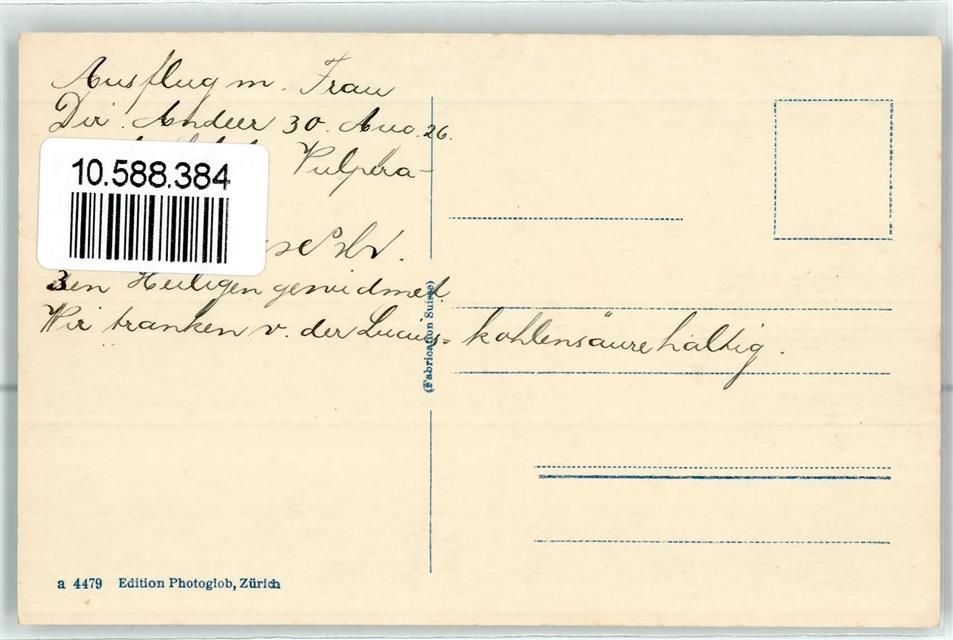 Ausflug m. Frau
Dir. Andeer 30. Aug. 26.
Vulpera-
10.588.384
3en Heiligen gewidmet
Wir tranken v. der Lucius= kohlensäurehaltig.
(Fabrication Suisse)
a 4479 Edition Photoglob, Zürich